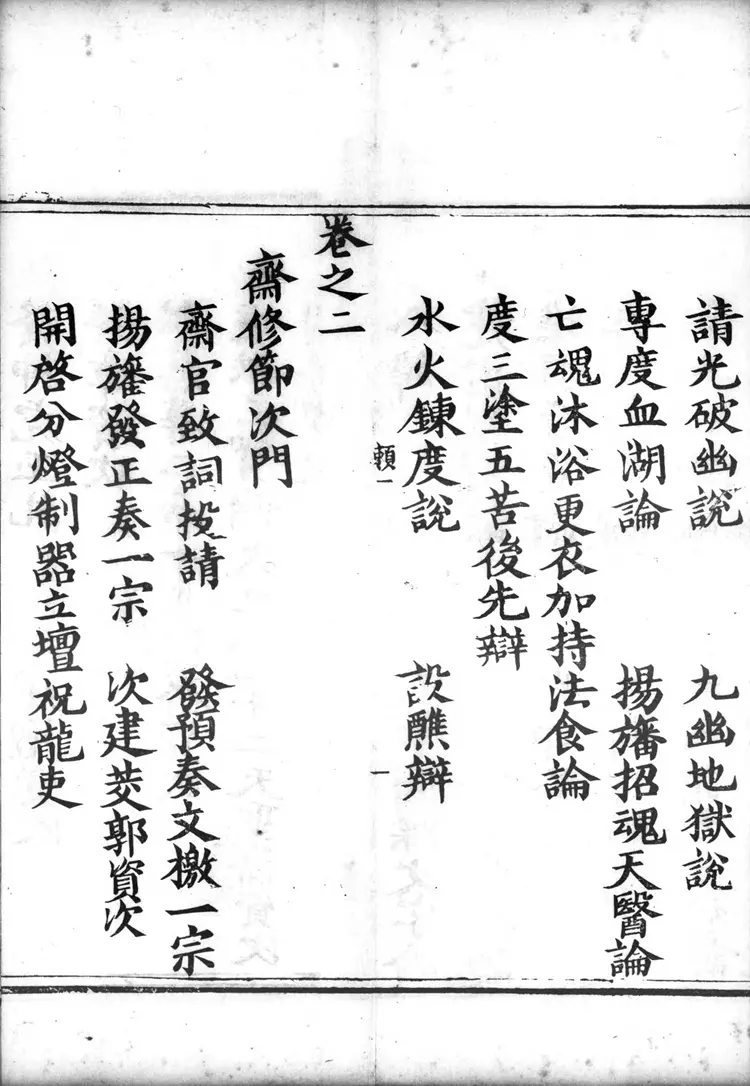 請光破幽說　九幽地獄說
專度血湖論　揚旛招魂天醫論
亡魂沐浴更衣加持法食論
度三塗五苦後先辯
水火鍊度說　設醮辯
頼一　一
卷之二
齋修節次門
齋官致詞投請　發預奏文檄一宗
揚旛發正奏一宗　次建茭郭資次
開啓分燈制器立壇祝龍吏